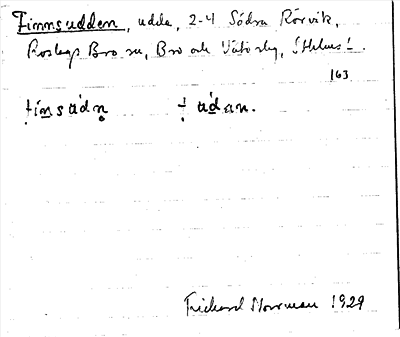 Finnsudden, udde, 2-4 Södra Rörvik,
Roslags Bro sn, Bro och Vätö skg, Sthlms l.
163
fínsúdn̥ ‡ údan.
Richard Norrman 1929